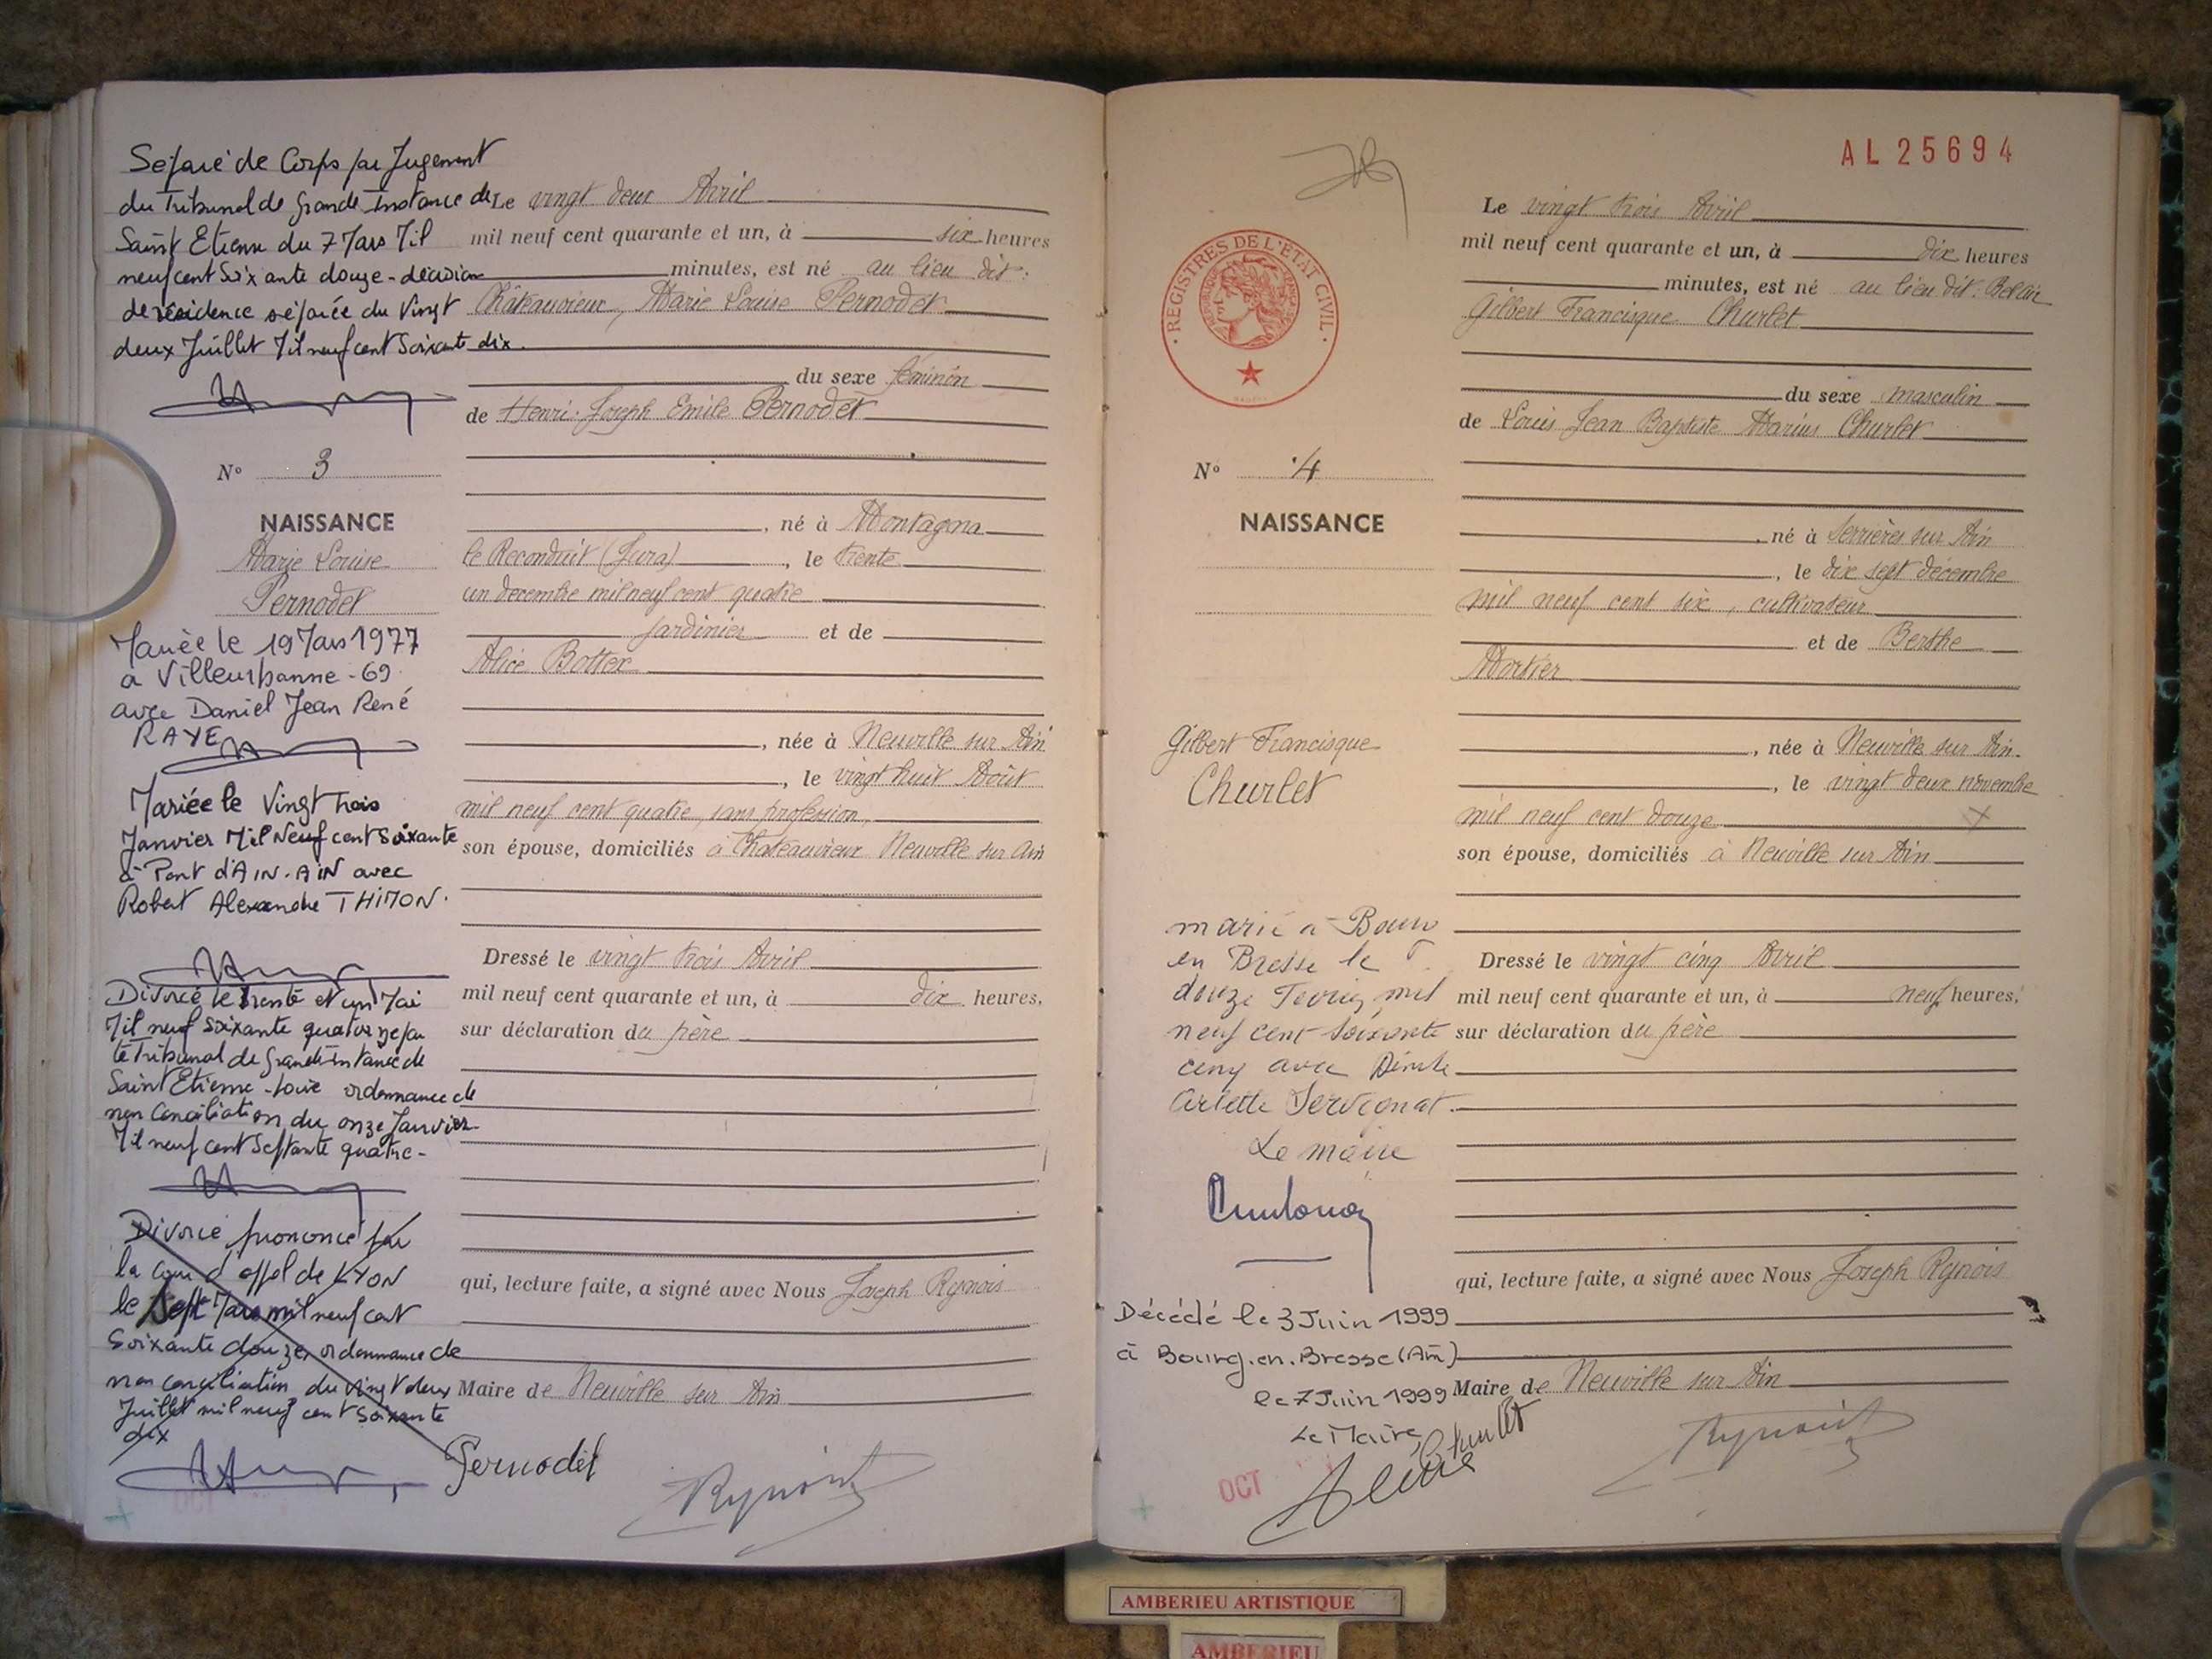 Séparé de Corps par Jugement
du Tribunal de Grande Instance de
Saint Etienne du 7 Mars Mil
neuf cent Soixante douze - décision
de résidence séparée du Vingt
deux Juillet Mil neuf cent Soixante dix.
N° 3
NAISSANCE
Marie Louise
Pernodet
Mariée le 19 Mars 1977
a Villeurbanne - 69
avec Daniel Jean René
RAYE
Mariée le Vingt trois
Janvier Mil Neuf cent Soixante
à Pont d'AIN - AIN avec
Robert Alexandre THIMON.
Divorcé le trente et un Mai
Mil neuf soixante quatorze par
le Tribunal de Grande Instance de
Saint Etienne - Loire ordonnance de
non Conciliation du onze Janvier
Mil neuf cent Septante quatre -
Divorce prononcé par
la cour d'appel de LYON
le Sept Mars mil neuf cent
Soixante douze, ordonnance de
non conciliation du vingt deux
Juillet mil neuf cent Soixante
dix
Le vingt deux Avril
mil neuf cent quarante et un, à six heures
minutes, est né au lieu dit:
Châteauvieux, Marie Louise Pernodet
du sexe féminin
de Henri Joseph Emile Pernodet
, né à Montagna
le Reconduit (Jura), le trente
un decembre mil neuf cent quatre
jardinier et de
Alice Bottex
, née à Neuville sur Ain
, le vingt huit Août
mil neuf cent quatre, sans profession,
son épouse, domiciliés à Châteauvieux Neuville sur Ain
Dressé le vingt trois Avril
mil neuf cent quarante et un, à dix heures,
sur déclaration du père
qui, lecture faite, a signé avec Nous Joseph Rynois
Maire de Neuville sur Ain
Pernodet
AL 25694
REGISTRES DE L'ÉTAT CIVIL
N° 4
NAISSANCE
Gilbert Francisque
Churlet
marié a Bourg
en Bresse le
douze Fevrier mil
neuf cent soixante
cinq avec
Arlette Servignat.
Le maire
Décédé le 3 Juin 1999
à Bourg.en.Bresse (Ain)
le 7 Juin 1999
Le Maire,
OCT
Le vingt trois Avril
mil neuf cent quarante et un, à dix heures
minutes, est né au lieu dit: Belair
Gilbert Francisque Churlet
du sexe masculin
de Louis Jean Baptiste Marius Churlet
, né à Serrières sur Ain
, le dix sept décembre
mil neuf cent six, cultivateur
et de Berthe
Mortier
, née à Neuville sur Ain.
, le vingt deux novembre
mil neuf cent douze
son épouse, domiciliés à Neuville sur Ain
Dressé le vingt cinq Avril
mil neuf cent quarante et un, à neuf heures,
sur déclaration du père
qui, lecture faite, a signé avec Nous Joseph Rynois
Maire de Neuville sur Ain
Churlet
AMBERIEU ARTISTIQUE
AMBERIEU